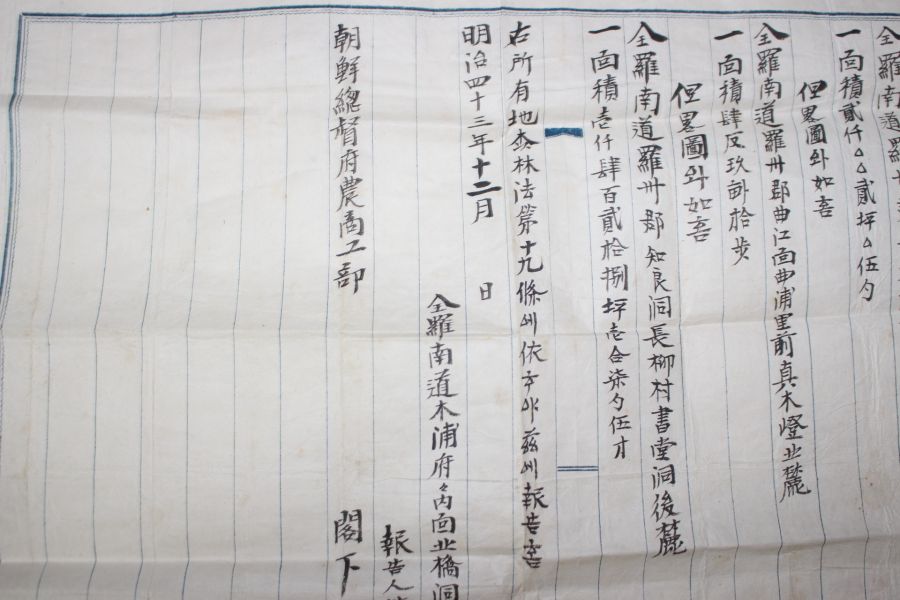 全羅南道羅
一面積貳仟△△貳坪△伍勺
但畧圖와如홈
全羅南道羅州郡曲江面曲浦里前真木嶝北麓
一面積肆反玖畝拾步
但畧圖와如홈
全羅南道羅州郡知良洞長柳村書堂洞後麓
一面積壱仟肆百貳拾捌坪壱合柒勺伍才
右所有地森林法第十九條에依하야玆에報告홈
明治四十三年十二月 日
全羅南道木浦府々內面北橋洞
報告人
朝鮮總督府農商工部 閣下